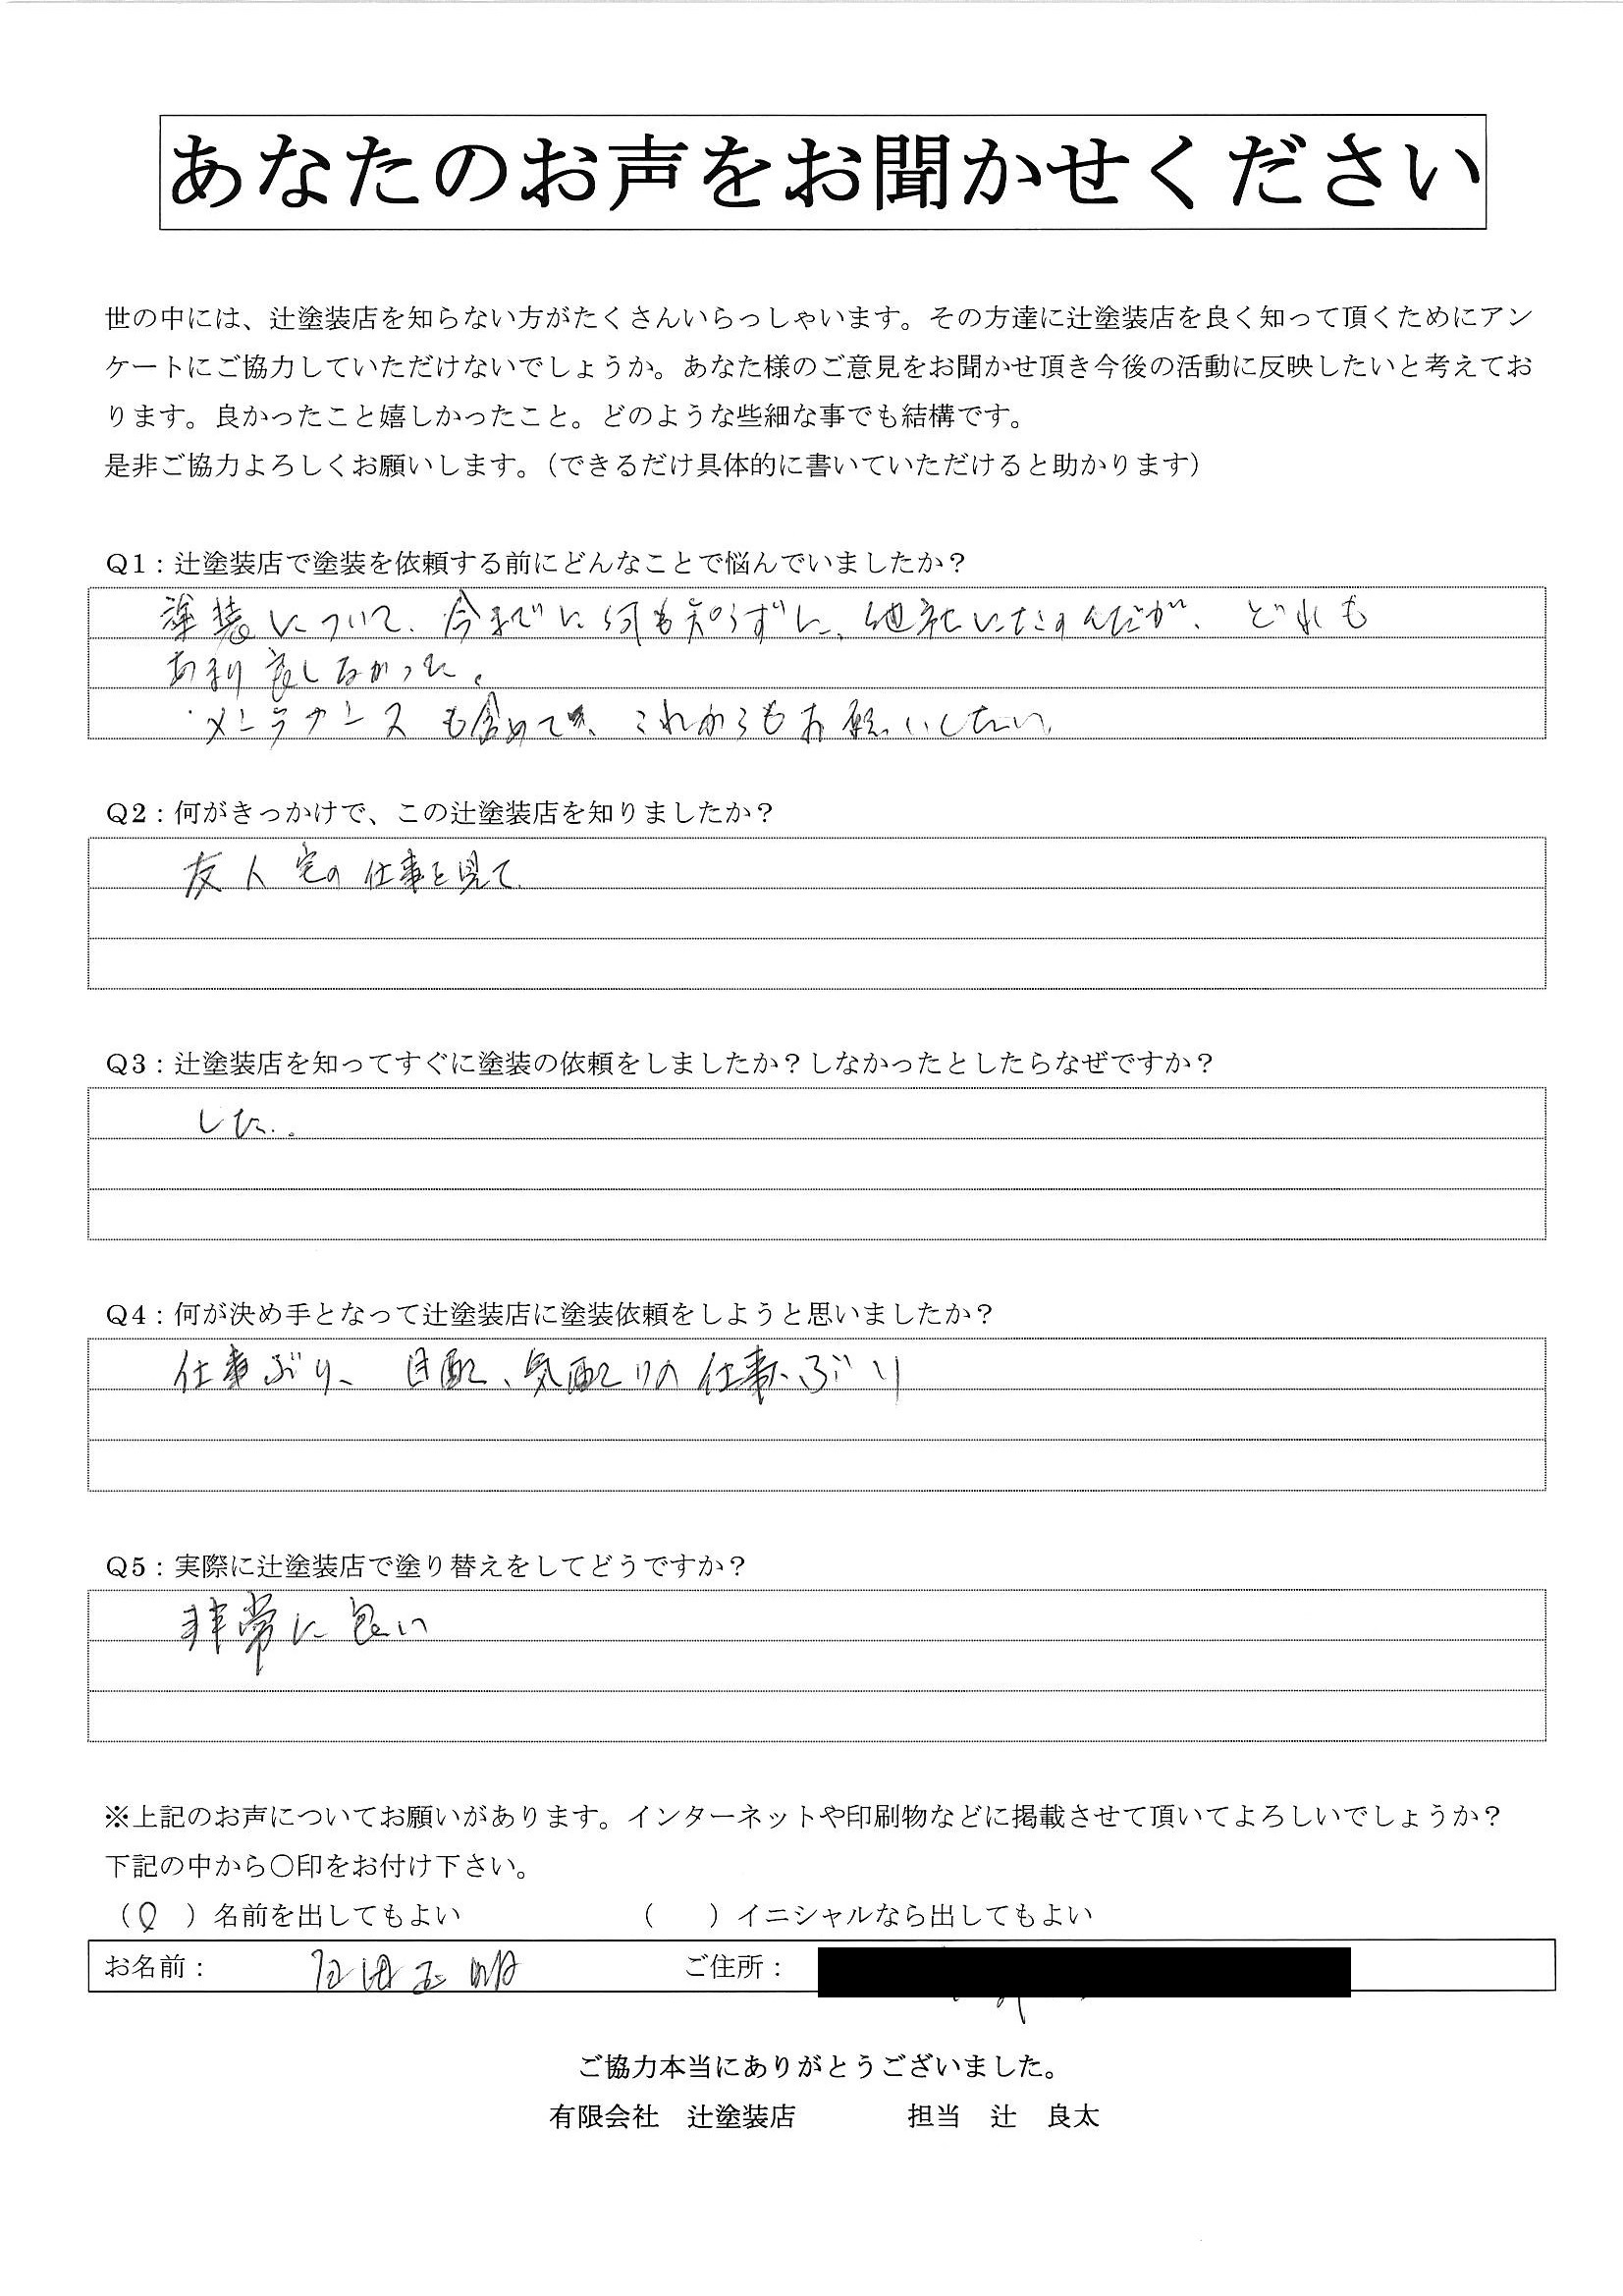 あなたのお声をお聞かせください
世の中には、辻塗装店を知らない方がたくさんいらっしゃいます。その方達に辻塗装店を良く知って頂くためにアン
ケートにご協力していただけないでしょうか。あなた様のご意見をお聞かせ頂き今後の活動に反映したいと考えてお
ります。良かったこと嬉しかったこと。どのような些細な事でも結構です。
是非ご協力よろしくお願いします。（できるだけ具体的に書いていただけると助かります）
Q1：辻塗装店で塗装を依頼する前にどんなことで悩んでいましたか？
塗装について、今までに何も知らずに、他社にたのんだが、どれも
あまり良しなかった。
・メンテナンスも含めて、これからもお願いしたい。
Q2：何がきっかけで、この辻塗装店を知りましたか？
友人宅の仕事を見て
Q3：辻塗装店を知ってすぐに塗装の依頼をしましたか？しなかったとしたらなぜですか？
した。
Q4：何が決め手となって辻塗装店に塗装依頼をしようと思いましたか？
仕事ぶり、目配、気配りの仕事ぶり
Q5：実際に辻塗装店で塗り替えをしてどうですか？
非常に良い
※上記のお声についてお願いがあります。インターネットや印刷物などに掲載させて頂いてよろしいでしょうか？
下記の中から〇印をお付け下さい。
（〇　）名前を出してもよい　（　　）イニシャルなら出してもよい
お名前：　ご住所：
ご協力本当にありがとうございました。
有限会社　辻塗装店　担当　辻　良太